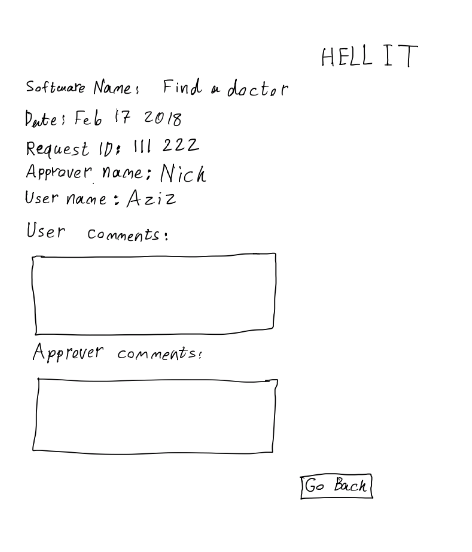 HELL IT
Software Name: Find a doctor
Date: Feb 17 2018
Request ID: 111 222
Approver name: Nick
User name: Aziz
User comments:
Approver comments:
Go Back